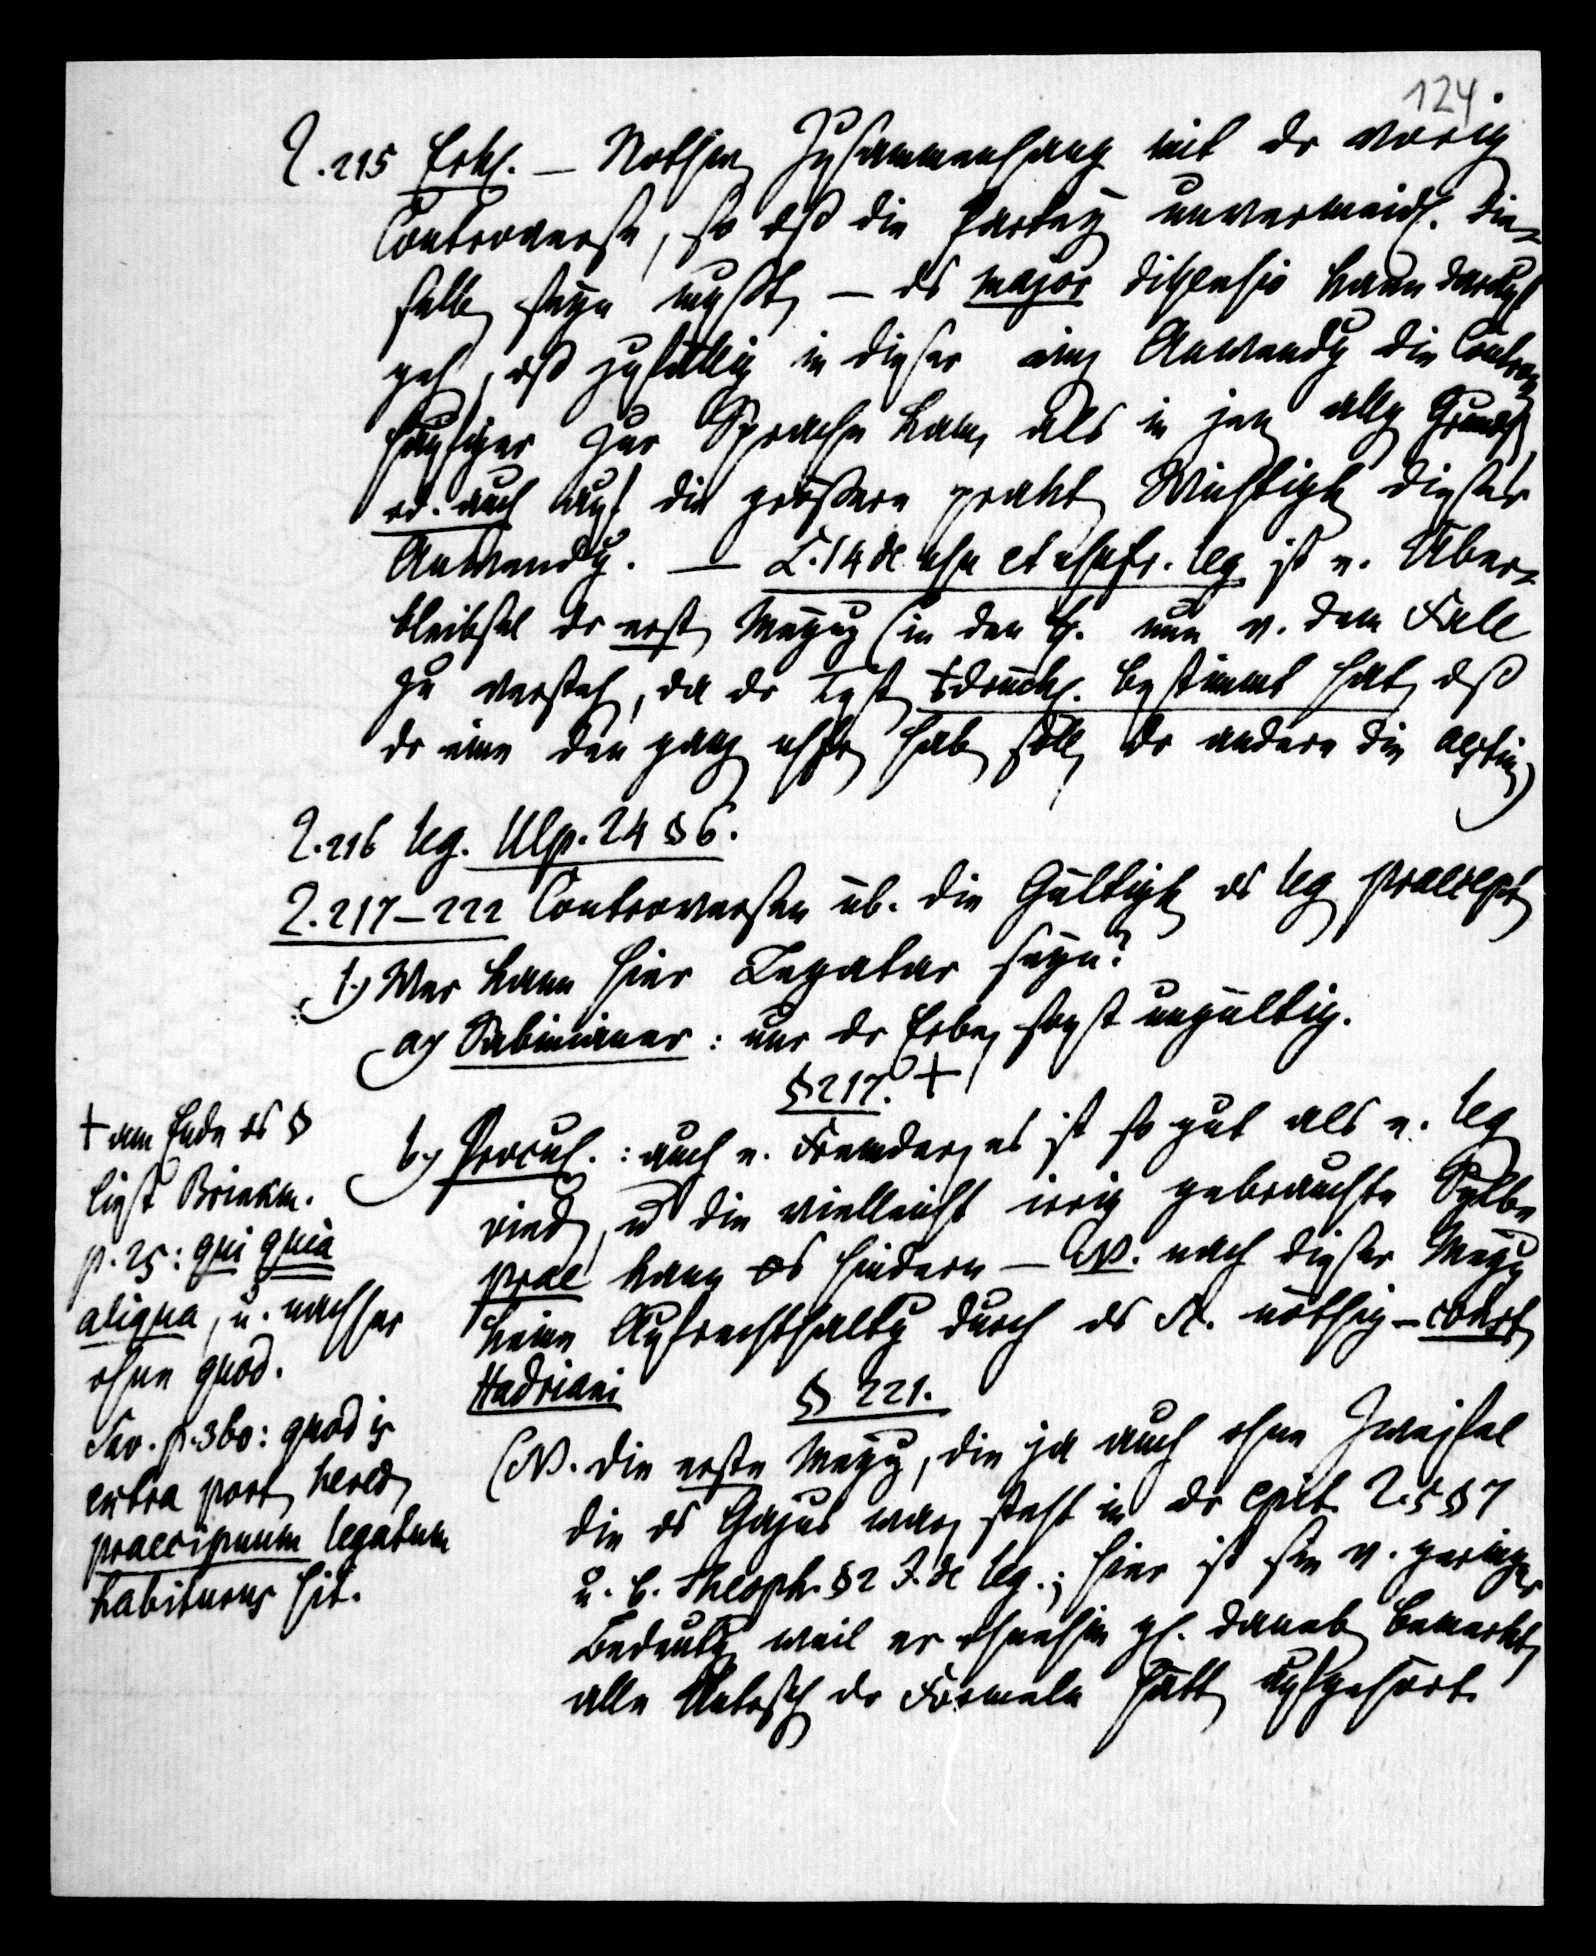 124.
2.215 Erkl. — Nothw Zusammenhang mit dr vorig
Controverse, so dß die Partey unvermeidl. die-
selb seyn mußt — ds major dissensio kann darauf
geh, dß zufällig in dieser einz Anwendg die Controv
häufiger zur Sprache kam, als in jen allg Grunds,
od. auch auf die größere prakt Wichtigk dieser
Anwendg. — L.14 de usu et usufr. leg ist e. Über-
bleibsel dr erst Meyng (in den P. nun v. dem Fall
zu versteh, da dr Test ausdrückl. bestimmt hat, dß
dr eine den ganz usfr hab soll, dr andere die
2.216 leg. Ulp. 24 § 6.
2.217–222 Controversen üb. die Gültigk ds leg praecept
1.) Wer kann hier Legatar seyn?
a) Sabinianer: nur dr Erbe, sonst ungültig.
§ 217. +
b) Procul.: auch e. Fremder, es ist so gut als e. leg
vind, u die vielleicht irrig gebrauchte Sylbe
prae kann ds hindern — N. nach dieser Meyng
keine Aufrechthaltg durch ds Sc. nöthig — const
Hadriani § 221.
(N. die erste Meyng, die ja auch ohne Zweifel
die ds Gajus war, steht in dr epit. 2.5 § 7
u. b. Theoph. § 2 J. de leg.; hier ist sie v. geringer
Bedeutg weil er ohnehin gl. daneb bemerkt,
alle Untersch dr Formeln hätt aufgehört.
+ am Ende ds §
liest Brinkm.
p. 25: qui quia
aliqua, u. nachher
ohne quod.
Sav. p. 360: quod is
extra port hered
praecipuum legatum
habiturus sit.